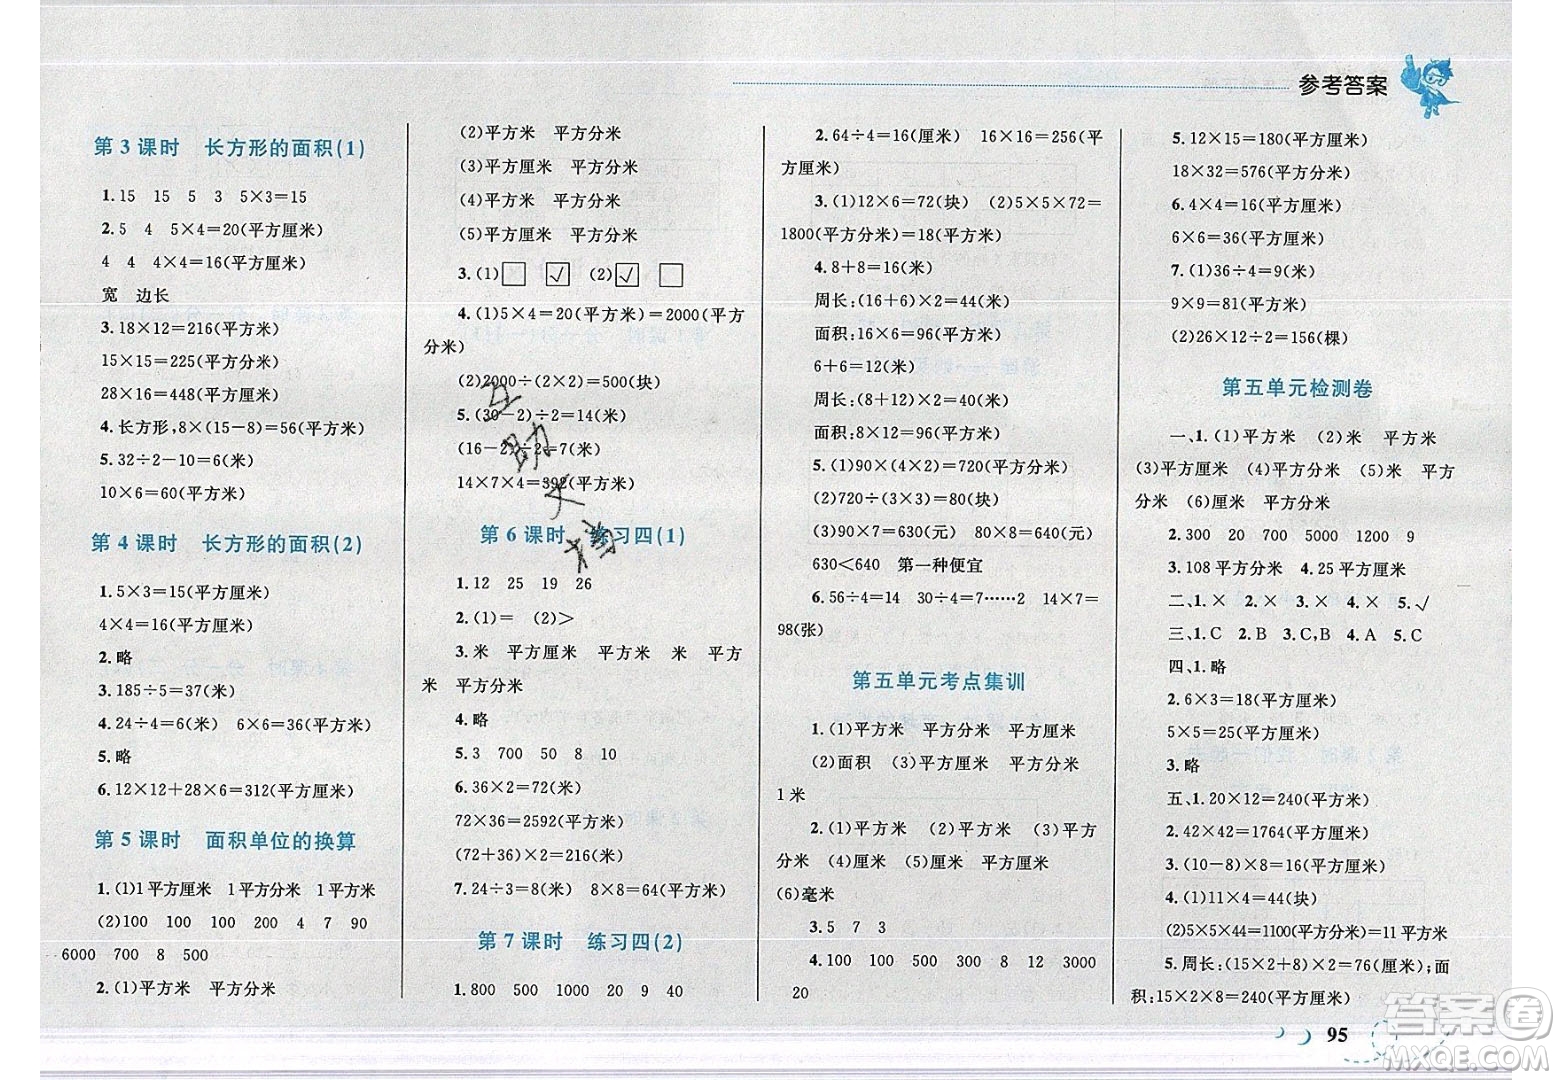 参考答案
第 3 课时　长方形的面积(1)
1.15　15　5　3　5×3=15
2.5　4　5×4=20(平方厘米)
4　4　4×4=16(平方厘米)
宽　边长
3.18×12=216(平方米)
15×15=225(平方分米)
28×16=448(平方分米)
4.长方形,8×(15-8)=56(平方米)
5.32÷2-10=6(米)
10×6=60(平方米)
第 4 课时　长方形的面积(2)
1.5×3=15(平方厘米)
4×4=16(平方厘米)
2.略
3.185÷5=37(米)
4.24÷4=6(米)　6×6=36(平方米)
5.略
6.12×12+28×6=312(平方厘米)
第 5 课时　面积单位的换算
1.(1)1平方厘米　1平方分米　1平方米
(2)100　100　100　200　4　7　90
6000　700　8　500
2.(1)平方米　平方分米
(2)平方米　平方分米
(3)平方厘米　平方分米
(4)平方米　平方分米
(5)平方厘米　平方分米
3.(1)□　☑　(2)☑　□
4.(1)5×4=20(平方米)=2000(平方
分米)
(2)2000÷(2×2)=500(块)
5.(30-2)÷2=14(米)
(16-2)÷2=7(米)
14×7×4=392(平方米)
第 6 课时　练习四(1)
1.12　25　19　26
2.(1)=　(2)>
3.米　平方厘米　平方米　米　平方
米　平方分米
4.略
5.3　700　50　8　10
6.36×2=72(米)
72×36=2592(平方米)
(72+36)×2=216(米)
7.24÷3=8(米)　8×8=64(平方米)
第 7 课时　练习四(2)
1.800　500　1000　20　9　40
2.64÷4=16(厘米)　16×16=256(平
方厘米)
3.(1)12×6=72(块)　(2)5×5×72=
1800(平方分米)=18(平方米)
4.8+8=16(米)
周长:(16+6)×2=44(米)
面积:16×6=96(平方米)
6+6=12(米)
周长:(8+12)×2=40(米)
面积:8×12=96(平方米)
5.(1)90×(4×2)=720(平方分米)
(2)720÷(3×3)=80(块)
(3)90×7=630(元)　80×8=640(元)
630<640　第一种便宜
6.56÷4=14　30÷4=7……2　14×7=
98(张)
第五单元考点集训
1.(1)平方米　平方分米　平方厘米
(2)面积　(3)平方厘米　平方分米
1米
2.(1)平方米　(2)平方米　(3)平方
分米　(4)厘米　(5)厘米　平方厘米
(6)毫米
3.5　7　3
4.100　100　500　300　8　12　3000
20
5.12×15=180(平方米)
18×32=576(平方米)
6.4×4=16(平方厘米)
6×6=36(平方厘米)
7.(1)36÷4=9(米)
9×9=81(平方米)
(2)26×12÷2=156(棵)
第五单元检测卷
一、1.(1)平方米　(2)米　平方米
(3)平方厘米　(4)平方分米　(5)米　平方
分米　(6)厘米　平方分米
2.300　20　7000　5000　1200　9
3.108平方分米　4.25平方厘米
二、1.×　2.×　3.×　4.×　5.√
三、1.C　2.B　3.C,B　4.A　5.C
四、1.略
2.6×3=18(平方厘米)
5×5=25(平方厘米)
3.略
五、1.20×12=240(平方米)
2.42×42=1764(平方米)
3.(10-8)×8=16(平方厘米)
4.(1)11×4=44(块)
(2)5×5×44=1100(平方分米)=11平方米
5.周长:(15×2+8)×2=76(厘米);面
积:15×2×8=240(平方厘米)
95
互助文档
答案圈
MXQE.COM